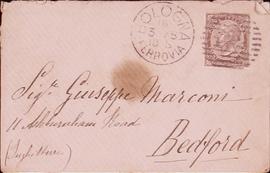 BOLOGNA
FERROVIA
Sigr. Giuseppe Marconi
11 Ashburnham Road
Bedford
(Inghilterra)